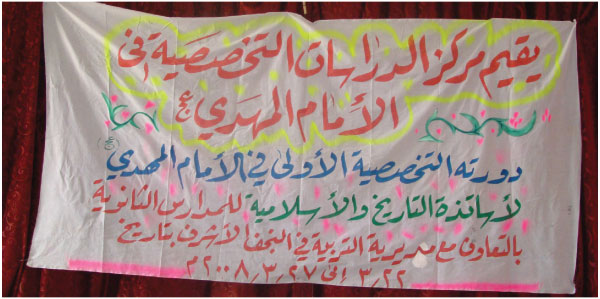 يقيم مركز الدراسات التخصصية في
الأمام المهدي عج
دورته التخصصية الأولى في الأمام المهدي
لأساتذة التاريخ والأسلامية للمدارس الثانوية
بالتعاون مع مديرية التربية في النجف الأشرف بتاريخ
٢٢_٣ إلى ٢٧_٣_٢٠٠٨ م